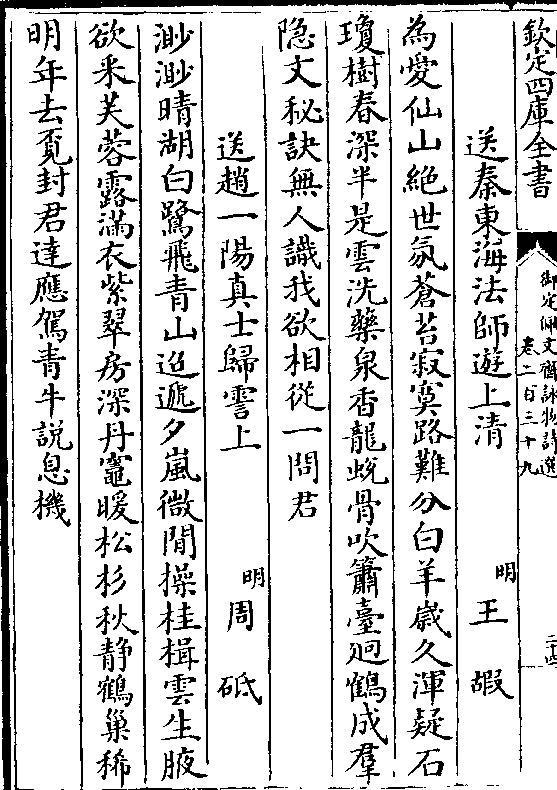 欽定四庫全書
御定佩文齋詠物詩選
卷二百三十九
二十四
送秦東海法師遊上清
明 王 嘏
為愛仙山絶世氛蒼苔寂寞路難分白羊歲久渾疑石
瓊樹春深半是雲洗藥泉香龍蛻骨吹簫臺迥鶴成羣
隐文秘訣無人識我欲相從一問君
送趙一陽真士歸霅上
明 周 砥
渺渺晴湖白鷺飛青山迢遞夕嵐微閒操桂楫雲生腋
欲采芙蓉露滿衣紫翠房深丹竈暖松杉秋静鶴巢稀
明年去覓封君達應駕青牛説息機